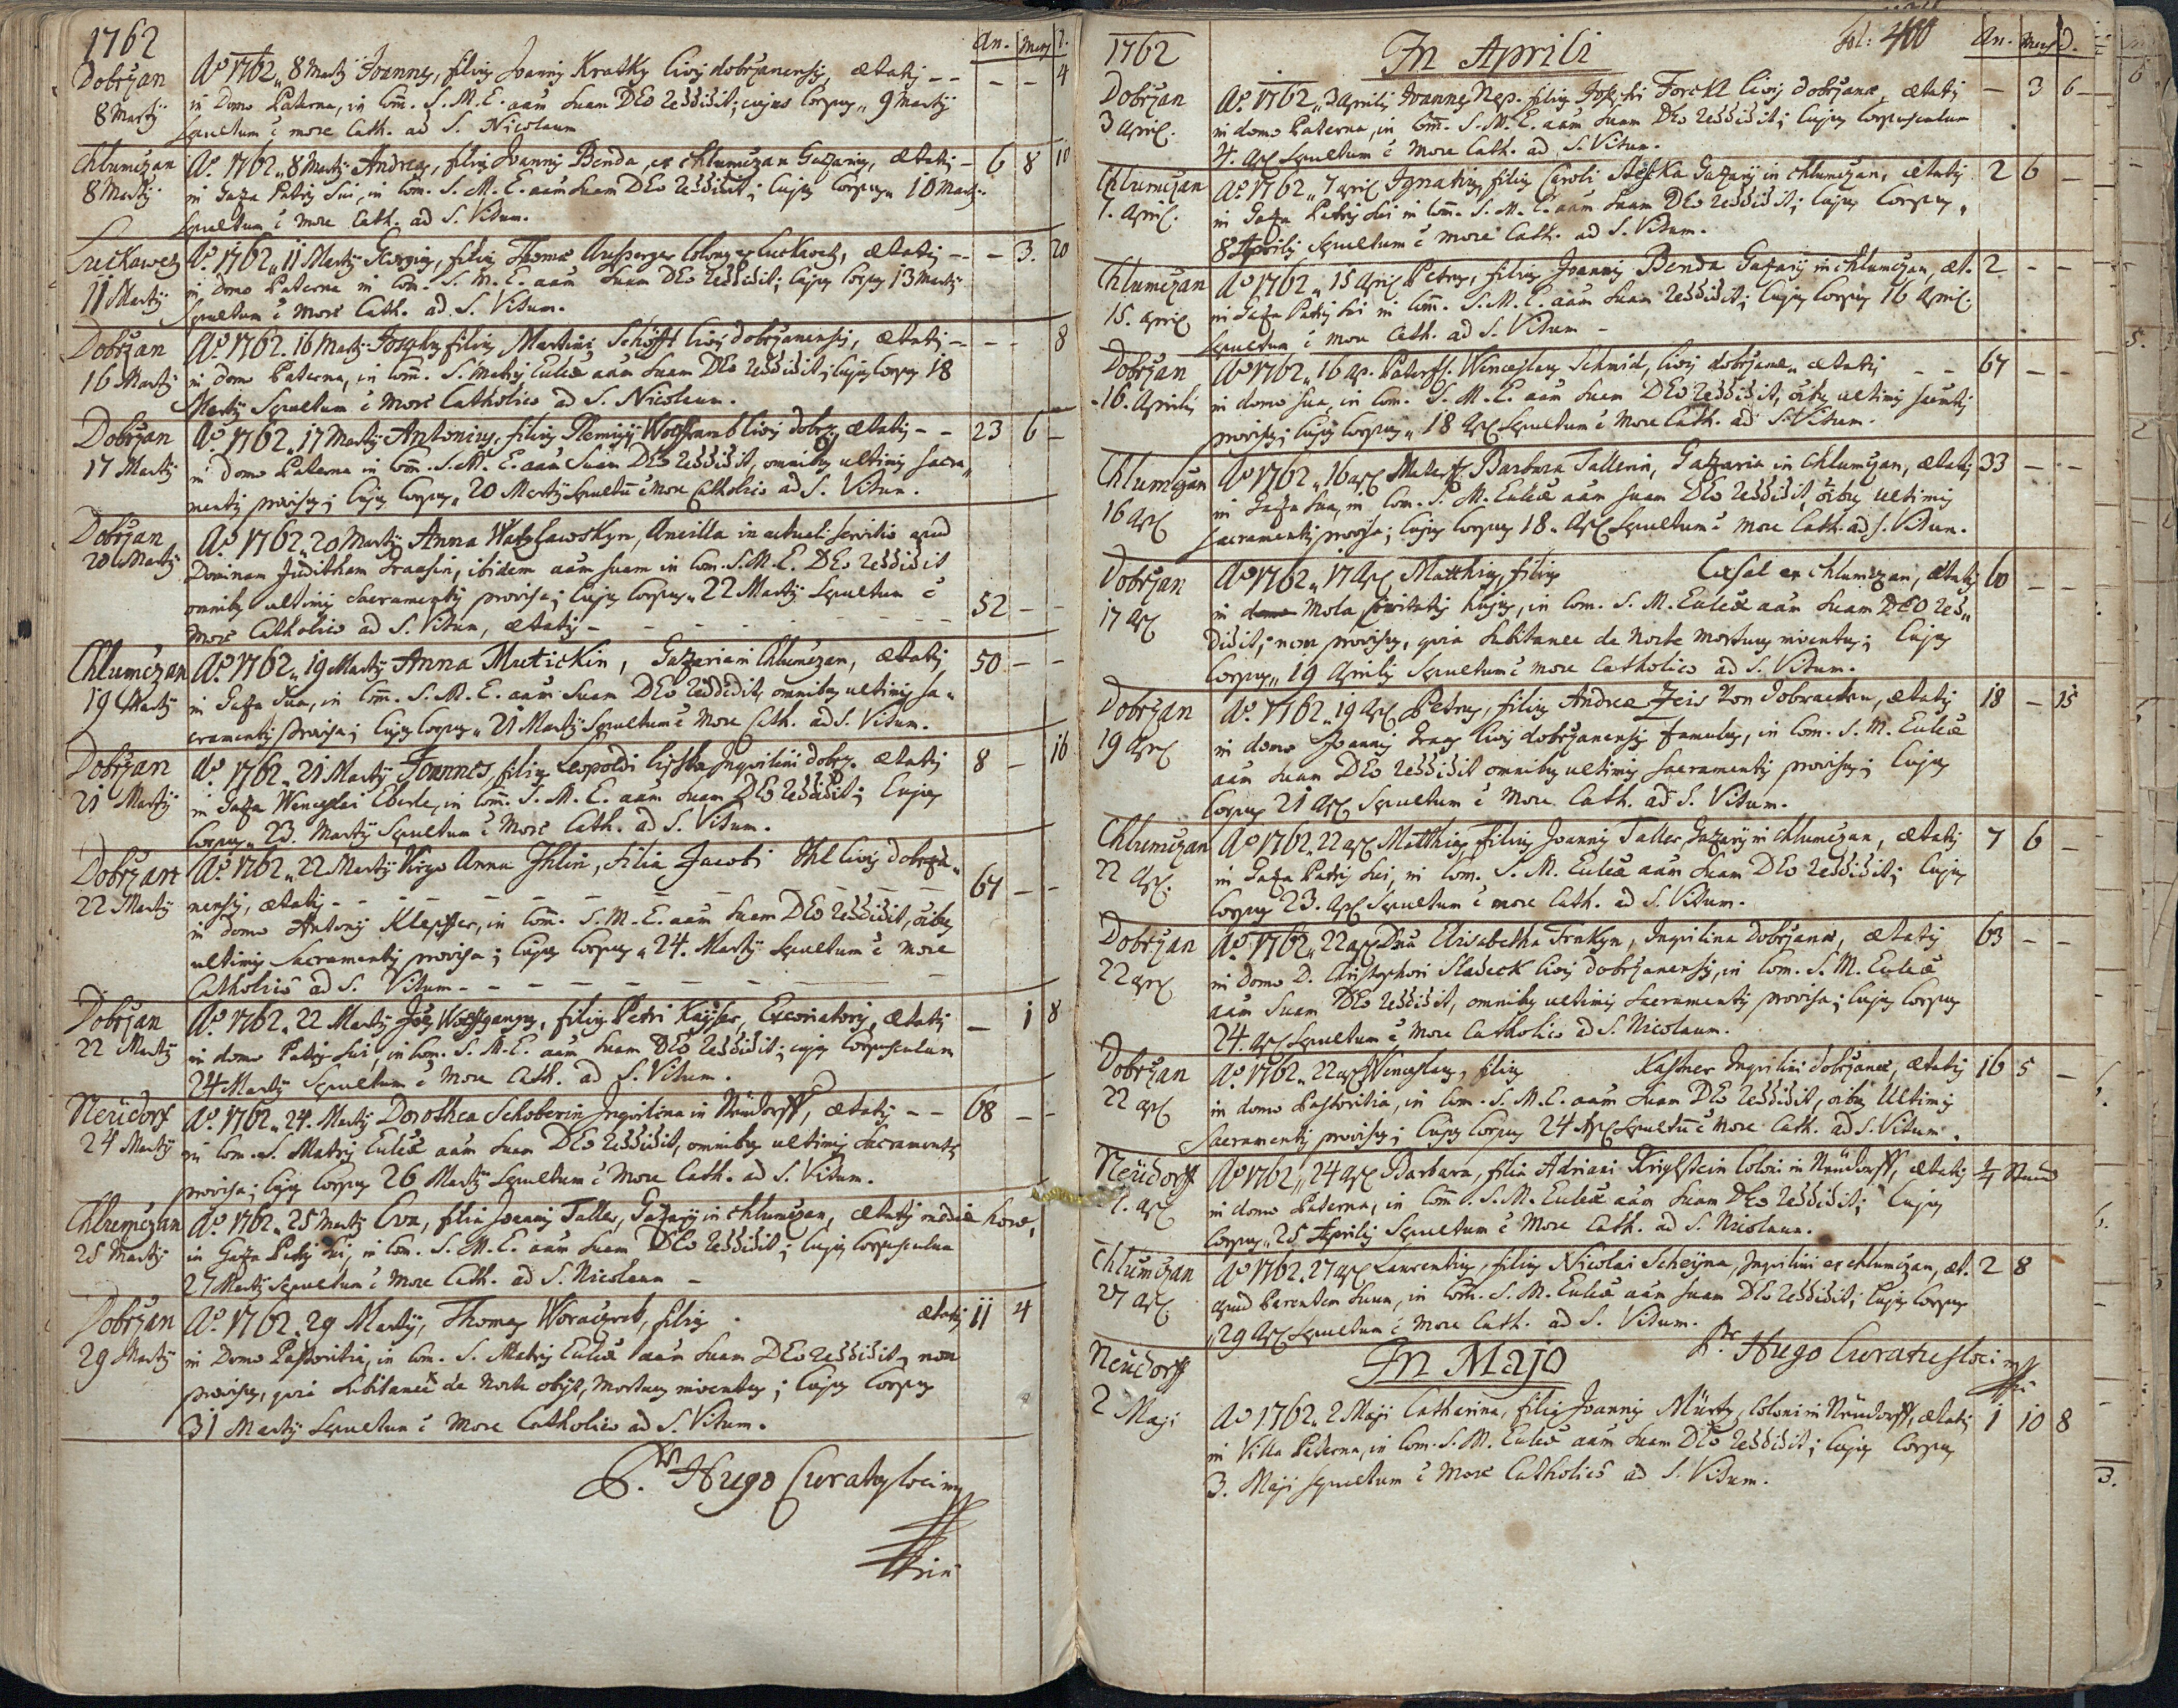 1762
An. Mens D.
Dobrzan
8 Martÿ
Ao 1762 „ 8 Martÿ Joannes, filius Joannis Kratky civis dobrzanensis, ætatis - - - - 4
in Domo Paterna, in Com. S. M. E. aãm suam DEo reddidit; cujus Corpus „ 9 Martÿ
sepultum è more Cath. ad S. Nicolaum
Chlumczan
8 Martÿ
Ao. 1762 „ 8 Martÿ Andreas, filius Joannis Benda, ex Chlumczan Gazarius, ætatis - 6 8 10
in Gaza Patris sui, in Com. S. M. E. aãm suam DEo reddidit; Cujus Corpus „ 10 Martÿ
sepultum è more Cath. ad S. Vitum.
Luckawetz
11 Martÿ
Ao. 1762 „ 11 Martÿ Georgius, filius Thomæ Colonus ex Luckawetz, ætatis - - - 3. 20
in domo Paterna in Com. S. M. E. aãm suam DEo reddidit; Cujus Corpus 13 Martÿ
sepultum è more Cath. ad S. Vitum.
Dobrzan
16 Martÿ
Ao. 1762. 16 Martÿ Josephus filius Martini Schöfft civis dobrzanensis, ætatis - - - 8
in domo Paterna, in Com. S. Matris Ecclæ aãm suam DEo reddidit; Cujus Corpus 18
Martÿ sepultum è more Catholico ad S. Nicolaum.
Dobrzan
17 Martÿ
Ao. 1762 „ 17 Martÿ Antonius, filius Remigÿ Wolfframb civis dobrz. ætatis - - 23 6 -
in domo Paterna in Com. S. M. E. aãm suam DEo reddidit, omnibus ultimis sacra„
mentis provisus; Cujus Corpus „ 20 Martÿ sepultũ è more Catholico ad S. Vitum.
Dobrzan
20 Martÿ
Ao. 1762 „ 20 Martÿ Anna Watzlawskyn, Ancilla in actuali servitio apud
Dominam Juditham ibidem aãm suam in Com. S. M. E. DEo reddidit
omnibus ultimis Sacramentis provisa; Cujus Corpus „ 22 Martÿ sepultum è
more Catholico ad S. Vitum, ætatis - - - - 52 - -
Chlumczan
19 Martÿ
Ao. 1762 „ 19 Martÿ Anna Mutickin, Gazaria in Chlumczan, ætatis 50 - -
in Gaza sua, in Com. S. M. E. aãm suam DEo reddidit, omnibus ultimis sa„
cramentis provisa; Cujus Corpus „ 21 Martÿ sepultum è more Cath. ad S. Vitum.
Dobrzan
21 Martÿ
Ao. 1762 „ 21 Martÿ Joannes, filius Leopoldi Inquilini dobrz. ætatis 8 - 16
in Gaza Wenceslai Eberle, in Com. S. M. E. aãm suam DEo reddidit; Cujus
Corpus „ 23. Martÿ sepultum è more Cath. ad S. Vitum.
Dobrzan
22 Martÿ
Ao. 1762 „ 22 Martÿ Virgo Anna Ihlin, filia Jacobi Ihl civis dobrza„
nensis, ætatis - - - - 67 - -
in domo Antonÿ Klepffer, in Com. S. M. E. aãm suam DEo reddidit, oĩbus
ultimis Sacramentis provisa; Cujus Corpus „ 24. Martÿ sepultum è more
Catholico ad S. Vitum - - - -
Dobrzan
22 Martÿ
Ao. 1762 „ 22 Martÿ Jos. Wolffgangus, filius Petri Kayser, Excoriatoris, ætatis - 1 8
in domo Patris sui, in Com. S. M. E. aãm suam DEo reddidit; cujus Corpusculum
24 Martÿ sepultum è more Cath. ad S. Vitum.
Neüdorf
24 Martÿ
Ao. 1762 „ 24. Martÿ Dorothea Schoberin Inquilina in Neüdorff, ætatis - - 68 - -
in Com. S. Matris Ecclæ aãm suam DEo reddidit, omnibus ultimis Sacramentis
provisa; Cujus Corpus 26 Martÿ sepultum è more Cath. ad S. Vitum.
Chlumczan
25 Martÿ
Ao. 1762 „ 25 Martÿ Eva, filia Joannis Taller, Gazarÿ in Chlumczan, ætatis mediæ horæ,
in Gaza Patris sui, in Com. S. M. E. aãm suam DEo reddidit; Cujus Corpusculum
27 Martÿ sepultum è more Cath. ad S. Nicolaum -
Dobrzan
29 Martÿ
Ao. 1762 „ 29 Martÿ, Thomas Woraczek, filius ætatis 11 4
in Domo Pastoritia, in Com. S. Matris Ecclæ aãm suam DEo reddidit, non
provisus, quia subitaneè de Nocte obÿt, mortuus inventus; Cujus Corpus
31 Martÿ sepultum è more Catholico ad S. Vitum.
P. Hugo Curatus loci mp
1762
In Aprili
fol: 400
An. Mens D.
Dobrzan
3 April.
Ao. 1762 „ 3 Aprilis Joannes Nep. filius Josephi Forckl civis dobrzanæ, ætatis - 3 6
in domo Paterna, in Com. S. M. E. aãm suam DEo reddidit; Cujus Corpusculum
4. Apr. sepultum è more Cath. ad S. Vitum.
Chlumczan
7. April.
Ao. 1762 „ 7 April. Ignatius, filius Caroli Gazarÿ in Chlumczan, ætatis 2 6 -
in Gaza Patris sui in Com. S. M. E. aãm suam DEo reddidit; Cujus Corpus „
8 Aprilis sepultum è more Cath. ad S. Vitum.
Chlumczan
15. April.
Ao 1762 „ 15 April. Petrus, filius Joannis Benda Gazarÿ in Chlumczan, æt. 2 - -
in Gaza Patris sui in Com. S. M. E. aãm suam reddidit; Cujus Corpus 16 April.
sepultum è more Cath. ad S. Vitum -
Dobrzan
16. Aprilis
Ao 1762 „ 16 Ap. Paterf. Wenceslaus Schmid, civis dobrzanæ, ætatis - - 67 - -
in domo sua, in Com. S. M. E. aãm suam DEo reddidit, oĩbus ultimis sacrãtis
provisus; Cujus Corpus „ 18 Apr. sepultum è more Cath. ad S. Vitum.
Chlumczan
16 Apr.
Ao 1762 „ 16 Apr. Materf. Barbara Tallerin, Gazaria in Chlumczan, ætatis 33 - -
in Gaza sua, in Com. S. M. Ecclæ aãm suam DEo reddidit, oĩbus ultimis
sacramentis provisa; Cujus Corpus 18. Apr. sepultum è more Cath. ad S. Vitum.
Dobrzan
17 Apr.
Ao 1762 „ 17 Apr. Matthias filius ex Chlumczan, ætatis 60 - -
in Mola Civitatis hujus, in Com. S. M. Ecclæ aãm suam DEO red„
didit; non provisus, quia subitanee de Nocte mortuus inventus; Cujus
Corpus „ 19 Aprilis sepultum è more Catholico ad S. Vitum.
Dobrzan
19 Apr.
Ao. 1762 „ 19 Apr. Petrus, filius Andreæ Zeis von Dobracken, ætatis 18 - 15
in domo Joannis civis dobrzanensis famulus, in Com. S. M. Ecclæ
aãm suam DEo reddidit omnibus ultimis sacramentis provisus; Cujus
Corpus 21 Apr. sepultum è more Cath. ad S. Vitum.
Chlumczan
22 Apr.
Ao 1762 „ 22 Apr. Matthias, filius Joannis Taller, Gazarÿ in Chlumczan, ætatis 7 6 -
in Gaza Patris sui, in Com. S. M. Ecclæ aãm suam DEo reddidit; Cujus
Corpus 23. Apr. sepultum è more Cath. ad S. Vitum.
Dobrzan
22 Apr.
Ao. 1762 „ 22 Apr. Dña Elisabetha Frnkyn, Inquilina Dobrzanæ, ætatis 63 - -
in domo D. Christophori Sladeck civis dobrzanensis, in Com. S. M. Ecclæ
aãm suam DEo reddidit, omnibus ultimis sacramentis provisa; Cujus Corpus
24. Apr. sepultum è more Catholico ad S. Nicolaum.
Dobrzan
22 Apr.
Ao. 1762 „ 22 Apr. Wenceslaus, filius Kastner Inquilini dobrzanæ, ætatis 16 5 -
in domo Pastoritia, in Com. S. M. E. aãm suam DEo reddidit, oĩbus Ultimis
sacramentis provisus; Cujus Corpus 24 Apr. sepultũ è more Cath. ad S. Vitum.
Neüdorff
Apr.
Ao 1762 „ 24 Apr. Barbara, filia Adriani Krighstein Coloni in Neüdorff, ætatis
in domo Paterna, in Com. S. M. Ecclæ aãm suam DEo reddidit; Cujus
Corpus „ 25 Aprilis sepultum è more Cath. ad S. Nicolaum.
Chlumczan
27 Apr.
Ao 1762. 27 Apr. Laurentius, filius Nicolai Scheyna, Inquilini ex Chlumczan, æt. 2 8
apud Parentem suum, in Com. S. M. Ecclæ aãm suam DEo reddidit; Cujus Corpus
„ 29 Apr. sepultum è more Cath. ad S. Vitum.
Pr. Hugo Curatus loci mp
In Majo
Neüdorff
2 Maji
Ao 1762 „ 2 Maji Catharina, filia Joannis Mürtz, Coloni in Neüdorff, ætatis 1 10 8
in Villa Paterna, in Com. S. M. Ecclæ aãm suam DEo reddidit; Cujus Corpus
3. Maji sepultum è more Catholico ad S. Vitum.